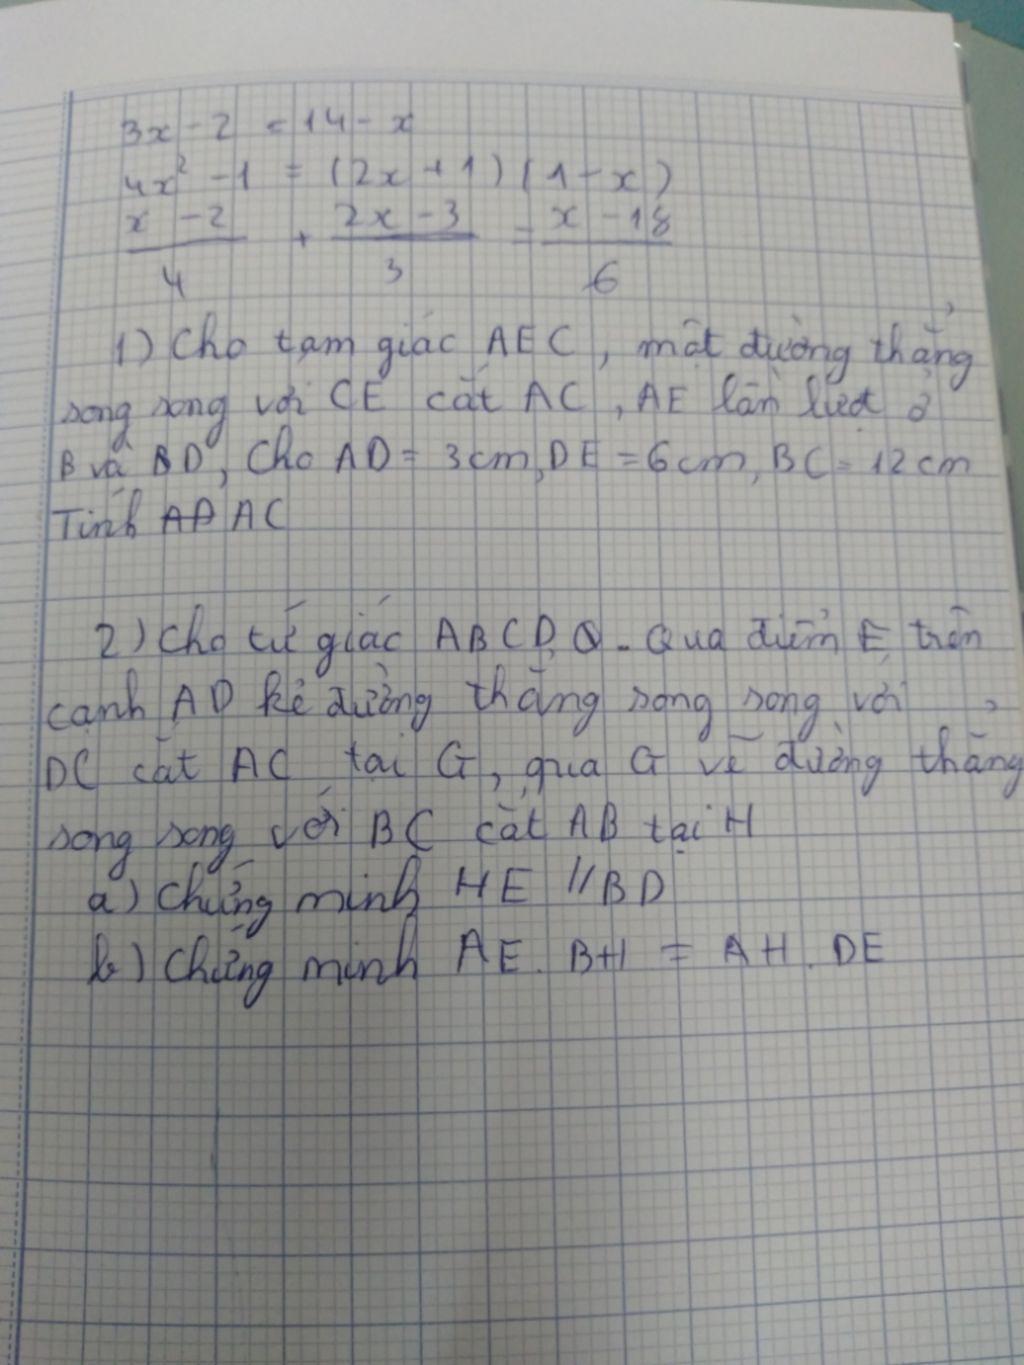 3x - 2 = 14 - x
4x² - 1 = (2x + 1) (1 - x)
x - 2 2x - 3 x - 18
+ =
4 3 6
1) Cho tam giác AEC, một đường thẳng
song song với CE cắt AC, AE lần lượt ở
B và BD, Cho AD = 3cm, DE = 6cm, BC = 12cm
Tính AC
2) Cho tứ giác ABCD. Qua điểm E trên
cạnh AD kẻ đường thẳng song song với
DC cắt AC tại G, qua G vẽ đường thẳng
song song với BC cắt AB tại H
a) Chứng minh HE // BD
b) Chứng minh AE. BH = AH. DE